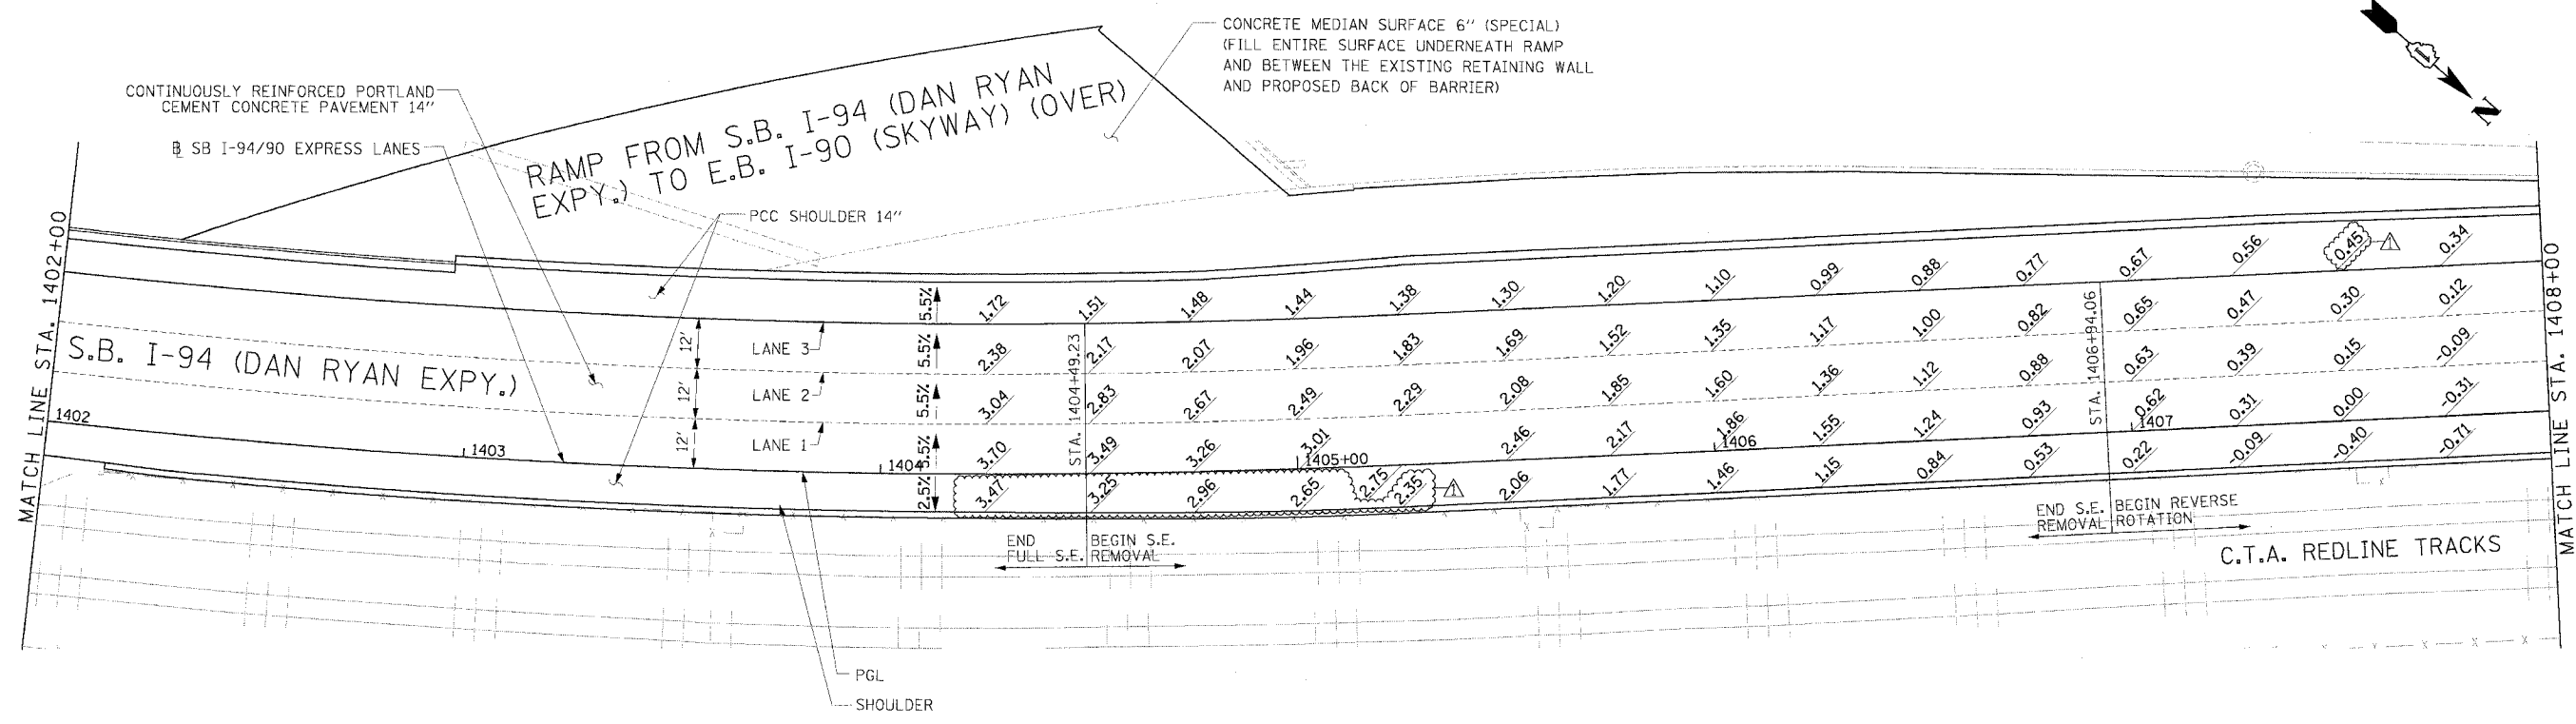 CONCRETE MEDIAN SURFACE 6'' (SPECIAL)
(FILL ENTIRE SURFACE UNDERNEATH RAMP
AND BETWEEN THE EXISTING RETAINING WALL
AND PROPOSED BACK OF BARRIER)
N
CONTINUOUSLY REINFORCED PORTLAND
CEMENT CONCRETE PAVEMENT 14''
SB I-94/90 EXPRESS LANES
RAMP FROM S.B. I-94 (DAN RYAN
EXPY.) TO E.B. I-90 (SKYWAY) (OVER)
PCC SHOULDER 14''
MATCH LINE STA. 1402+00
S.B. I-94 (DAN RYAN EXPY.)
12'
12'
12'
LANE 3
LANE 2
LANE 1
5.5%
5.5%
5.5%
5.5%
2.5%
1.72 1.51 1.48 1.44 1.38 1.30 1.20 1.10 0.99 0.88 0.77 0.67 0.56 0.45 1 0.34
2.38 2.17 2.07 1.96 1.83 1.69 1.52 1.35 1.17 1.00 0.82 0.65 0.47 0.30 0.12
3.04 2.83 2.67 2.49 2.29 2.08 1.85 1.60 1.36 1.12 0.88 0.63 0.39 0.15 -0.09
3.70 3.49 3.26 3.01 2.75 2.46 2.17 1.86 1.55 1.24 0.93 0.62 0.31 0.00 -0.31
3.47 3.25 2.96 2.65 2.35 1 2.06 1.77 1.46 1.15 0.84 0.53 0.22 -0.09 -0.40 -0.71
1402
1403
1404
1405+00
1406
1407
STA. 1404+49.23
STA. 1406+94.06
END
FULL S.E.
BEGIN S.E.
REMOVAL
END S.E.
REMOVAL
BEGIN REVERSE
ROTATION
C.T.A. REDLINE TRACKS
MATCH LINE STA. 1408+00
PGL
SHOULDER